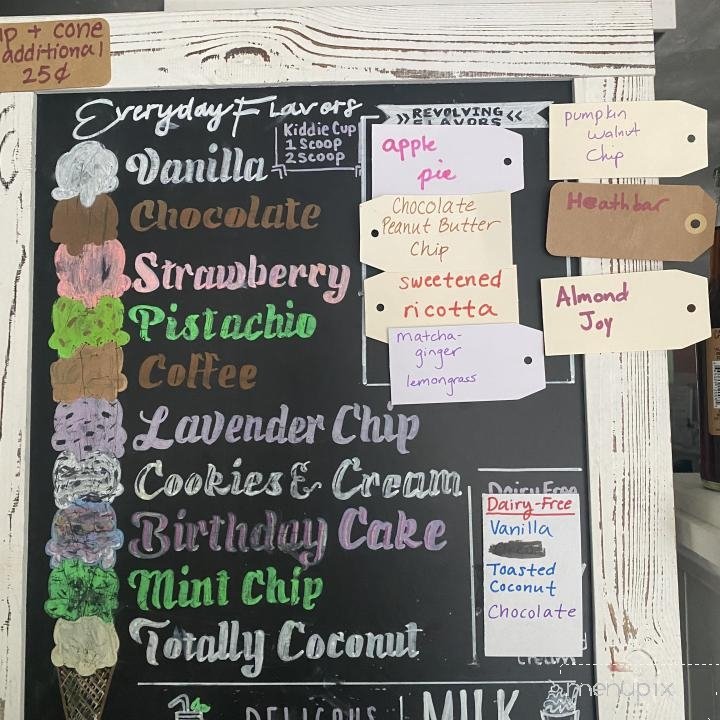 up + cone
additional
25¢
Everyday Flavors
Kiddie Cup
1 Scoop
2 Scoop
Vanilla
Chocolate
Strawberry
Pistachio
Coffee
Lavender Chip
Cookies & Cream
Birthday Cake
Mint Chip
Totally Coconut
>> REVOLVING <<
FLAVORS
apple
pie
Chocolate
Peanut Butter
Chip
sweetened
ricotta
matcha-
ginger
lemongrass
pumpkin
walnut
Chip
Heathbar
Almond
Joy
Dairy Free
Dairy-Free
Vanilla
Toasted
Coconut
Chocolate
DELICOUS
MILK
menupix